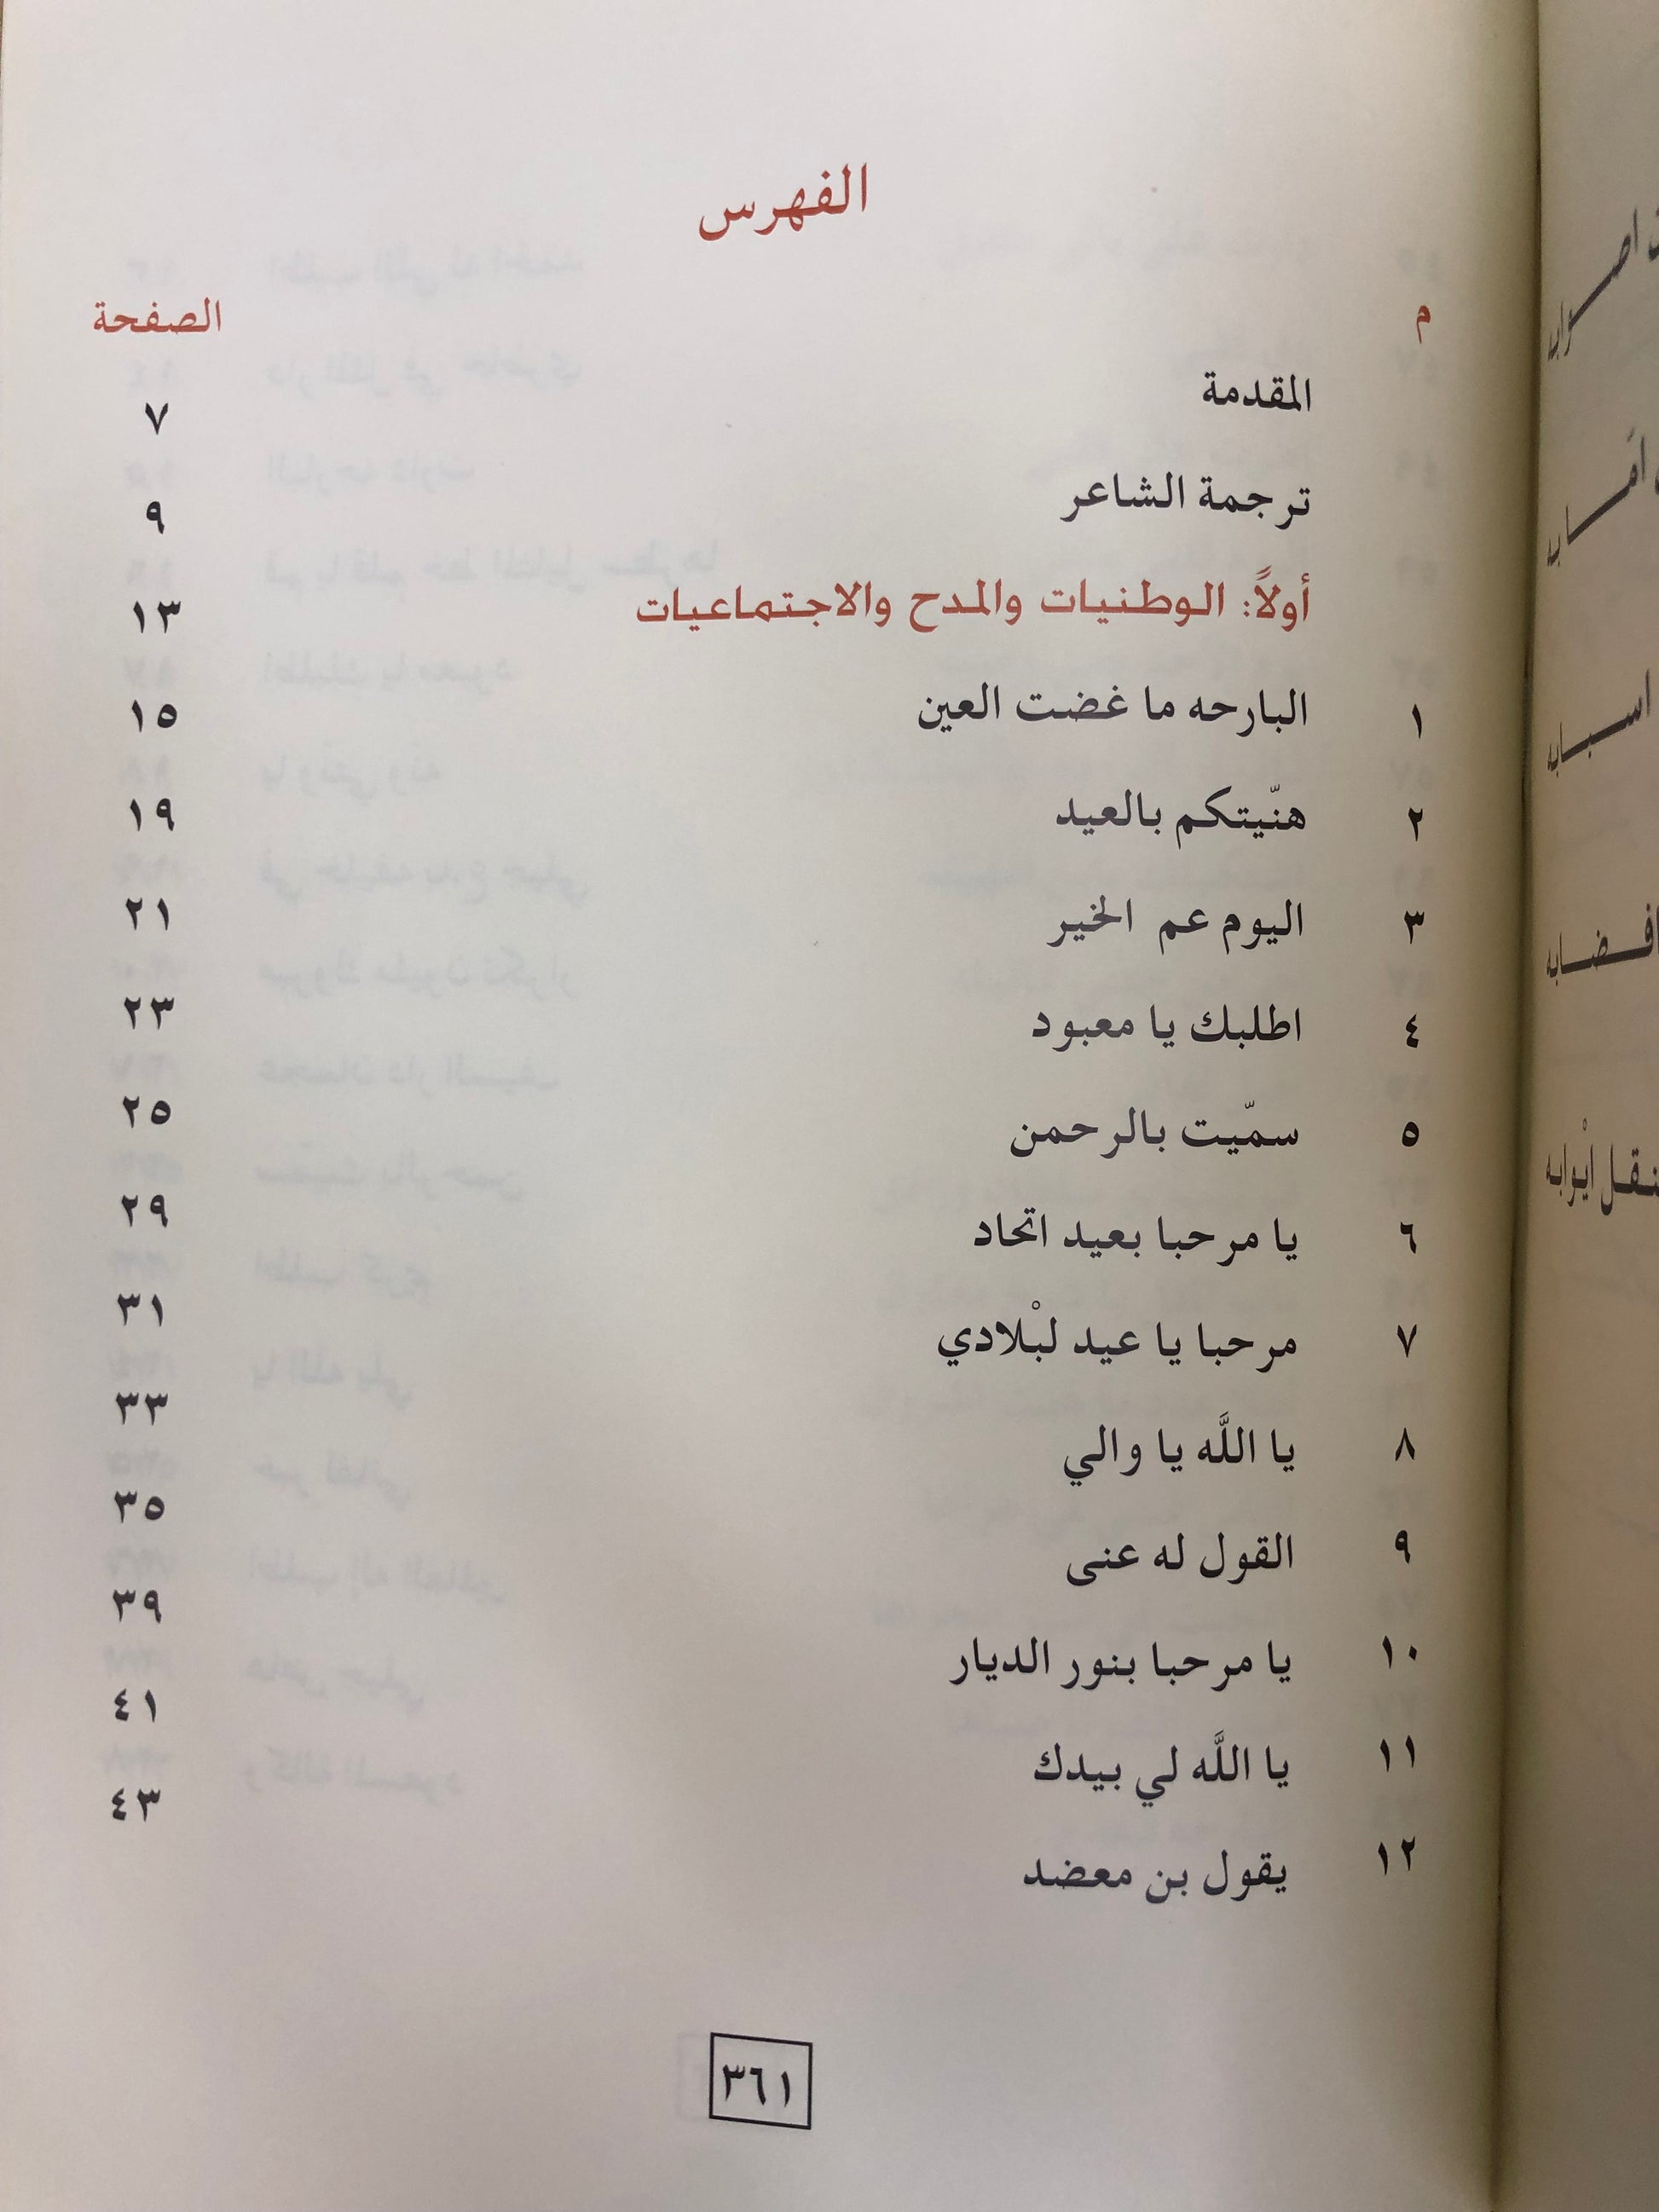 الفهرس
م الصفحة
المقدمة ٧
ترجمة الشاعر ٩
أولاً: الوطنيات والمدح والاجتماعيات ١٣
١ البارحه ما غضت العين ١٥
٢ هنّيتكم بالعيد ١٩
٣ اليوم عم الخير ٢١
٤ اطلبك يا معبود ٢٣
٥ سمّيت بالرحمن ٢٥
٦ يا مرحبا بعيد اتحاد ٢٩
٧ مرحبا يا عيد لبْلادي ٣١
٨ يا اللَّه يا والي ٣٣
٩ القول له عنى ٣٥
١٠ يا مرحبا بنور الديار ٣٩
١١ يا اللَّه لي بيدك ٤١
١٢ يقول بن معضد ٤٣
٣٦١
اسبابه